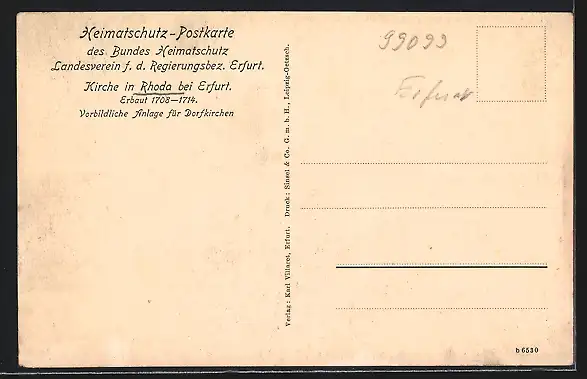 Heimatschutz-Postkarte
des Bundes Heimatschutz
Landesverein f. d. Regierungsbez. Erfurt.
Kirche in Rhoda bei Erfurt.
Erbaut 1708—1714.
Vorbildliche Anlage für Dorfkirchen
Verlag: Karl Villaret, Erfurt. Druck: Sinsel & Co. G. m. b. H., Leipzig-Oetzsch.
99099
Erfurt
b 6530